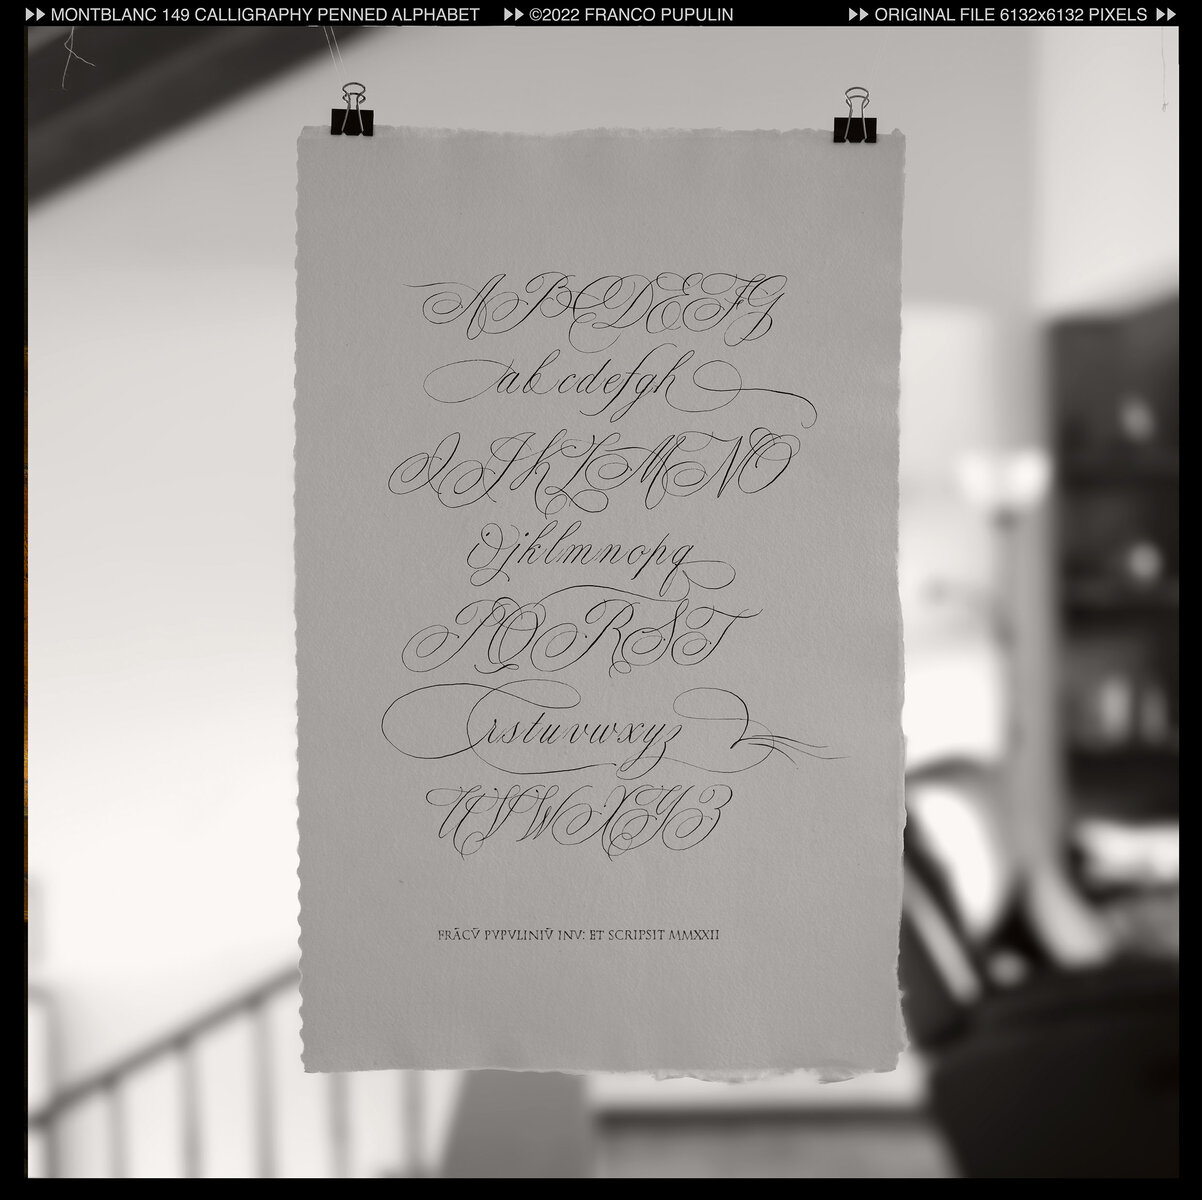 ▶▶ MONTBLANC 149 CALLIGRAPHY PENNED ALPHABET ▶▶ ©2022 FRANCO PUPULIN ▶▶ ORIGINAL FILE 6132x6132 PIXELS ▶▶
A B C D E F G
a b c d e f g h
I J K L M N O
i j k l m n o p q
P Q R S T
r s t u v w x y z
U V W X Y Z
FRĀCV̄ PVPVLINIV̄ INV: ET SCRIPSIT MMXXII